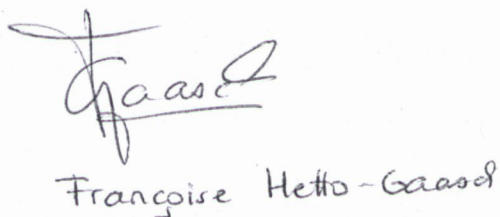 Gaasch
Françoise Hetto-Gaasch